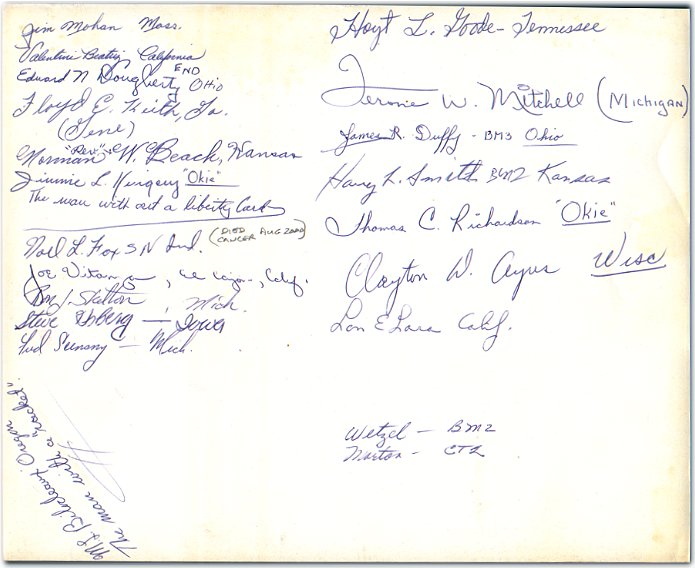 Jim Mohan Mass.
Valentine Beatty California
Edward N Dougherty END Ohio
Floyd E. Keith, Ga.
(Gene)
Norman "Rev" W. Beach, Kansas
Jimmie L. "Okie"
The man with out a liberty Card
Noel L. Fox SN Ind. (DIED CANCER AUG 2000)
Joe Calif.
J. Skelton, Mich.
Steve — Iowa
— Mich.
M.L. Bilodeaux Oregon
The man with a "racket".
Hoyt L. Goode - Tennessee
Jerome W. Mitchell (Michigan)
James R. Duffy - BM3 Ohio
Harry L. Smith BM2 Kansas
Thomas C. Richardson "Okie"
Clayton D. Ayers Wisc
Lon E Lara Calif.
Wetzel — BM2
Norton -